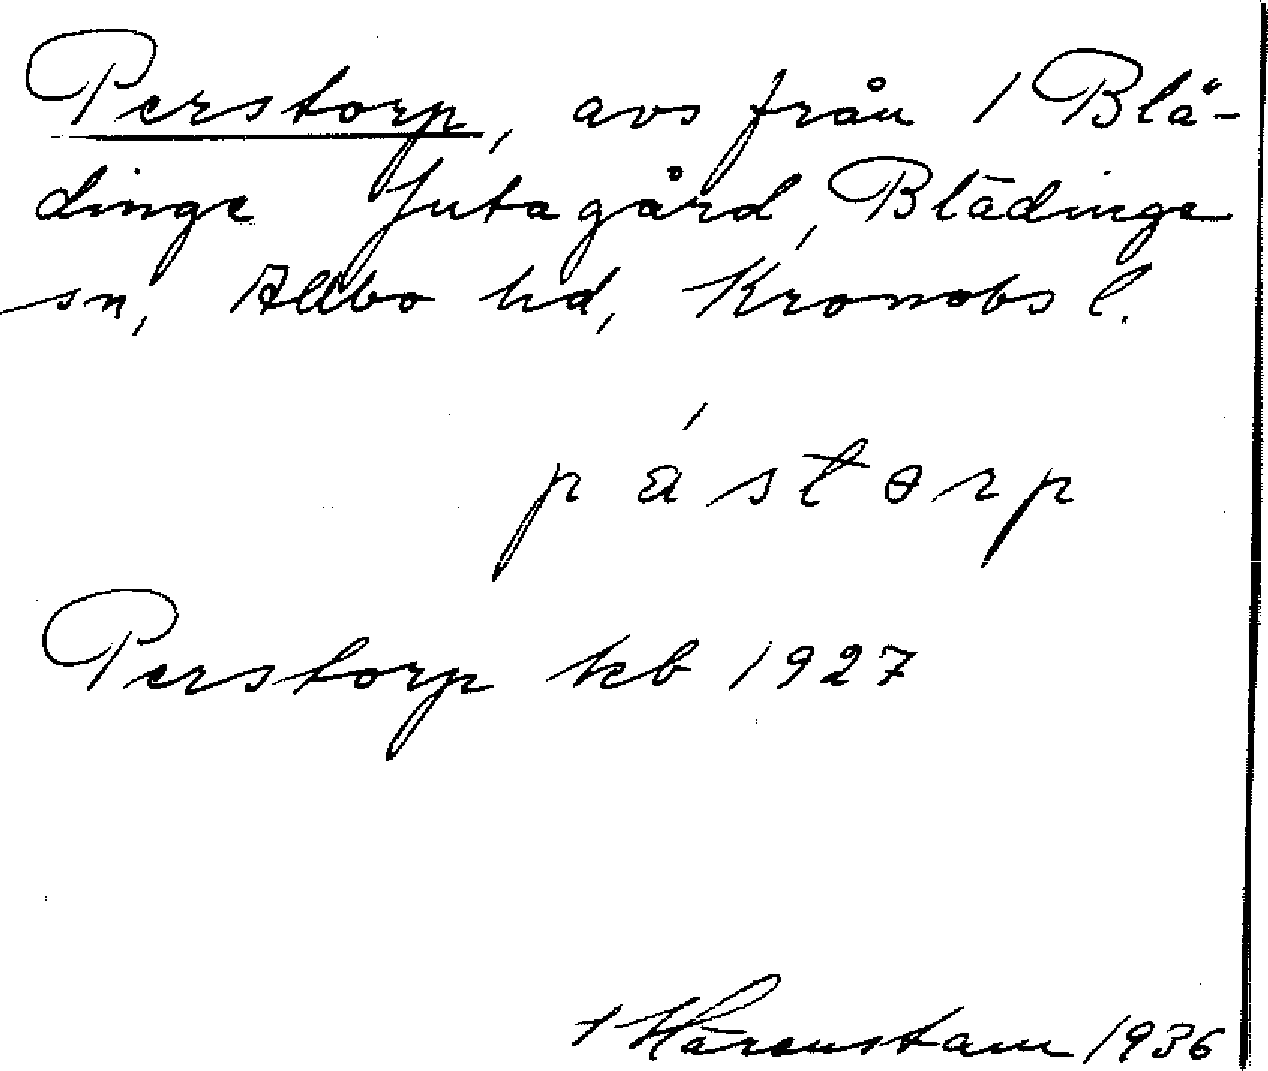 Perstorp, avs från 1 Blä-
dinge Jutagård, Blädinge
sn, Allbo hd, Kronobs l.
pástorp
Perstorp kb 1927
Härenstam 1936